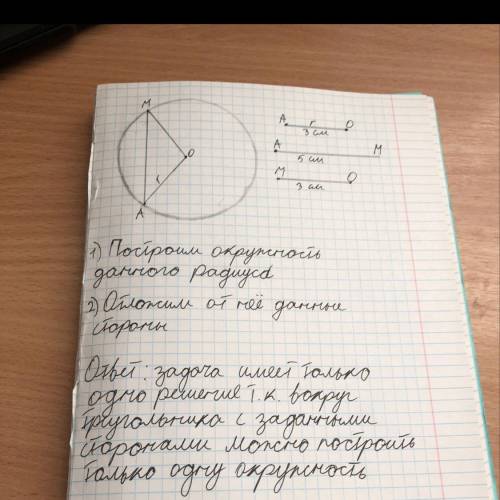 M
O
r
A
A r O
3 см
A M
5 см
M O
3 см
1) Построим окружность
данного радиуса
2) Отложим от неё данные
стороны
Ответ: задача имеет только
одно решение т.к. вокруг
треугольника с заданными
сторонами можно построить
только одну окружность